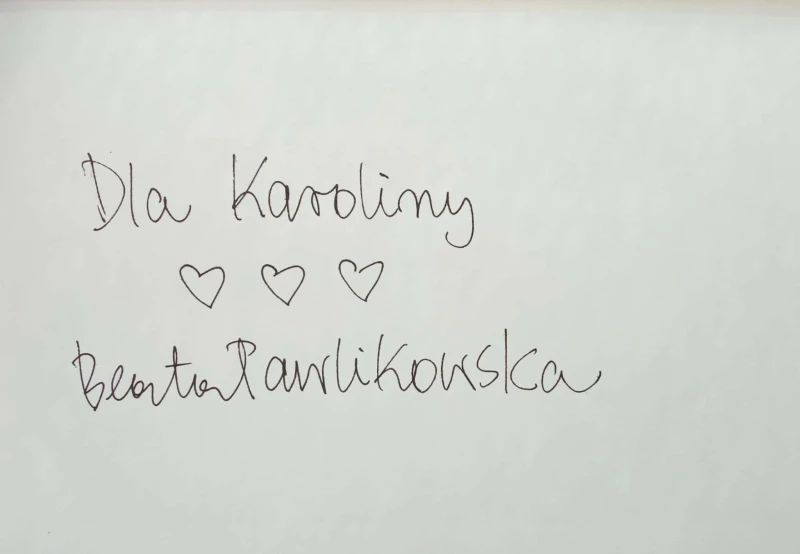 Dla Karoliny
♡ ♡ ♡
Beata Pawlikowska